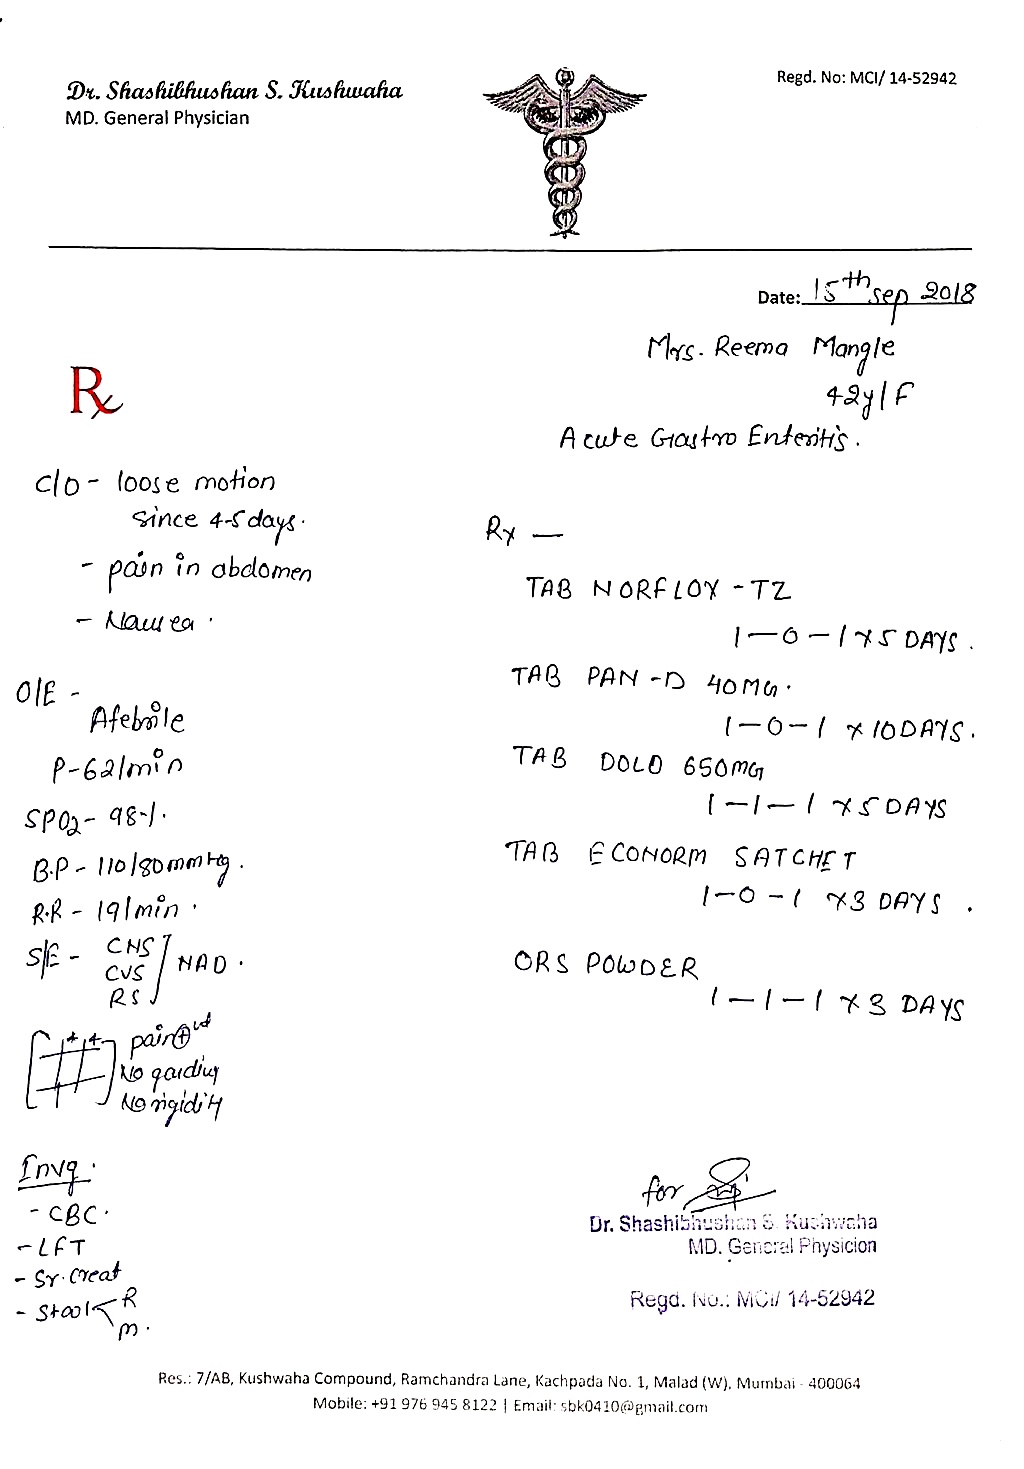 Dr. Shashibhushan S. Kushwaha
MD. General Physician
Regd. No: MCI/ 14-52942
Date: 15th sep 2018
Mrs. Reema Mangle
42y/F
Acute Gastro Enteritis.
Rx
C/O - loose motion
since 4-5 days.
- pain in abdomen
- Nausea.
O/E -
Afebrile
P-62/min
SPO2 - 98%.
B.P - 110/80mmHg.
R.R - 19/min.
S/E - CNS
CVS
RS
NAD.
++ pain +ve
No garding
No rigidity
Invg:
- CBC.
- LFT
- Sr. Creat
- Stool < R
M.
Rx —
TAB NORFLOX - TZ
1-0-1 x 5 DAYS.
TAB PAN-D 40MG.
1-0-1 x 10DAYS.
TAB DOLO 650MG
1-1-1 x 5 DAYS
TAB ECONORM SATCHET
1-0-1 x 3 DAYS.
ORS POWDER
1-1-1 x 3 DAYS
for
Dr. Shashibhushan S. Kushwaha
MD. General Physicion
Regd. No.: MCI/ 14-52942
Res.: 7/AB, Kushwaha Compound, Ramchandra Lane, Kachpada No. 1, Malad (W), Mumbai - 400064
Mobile: +91 976 945 8122 | Email: sbk0410@gmail.com